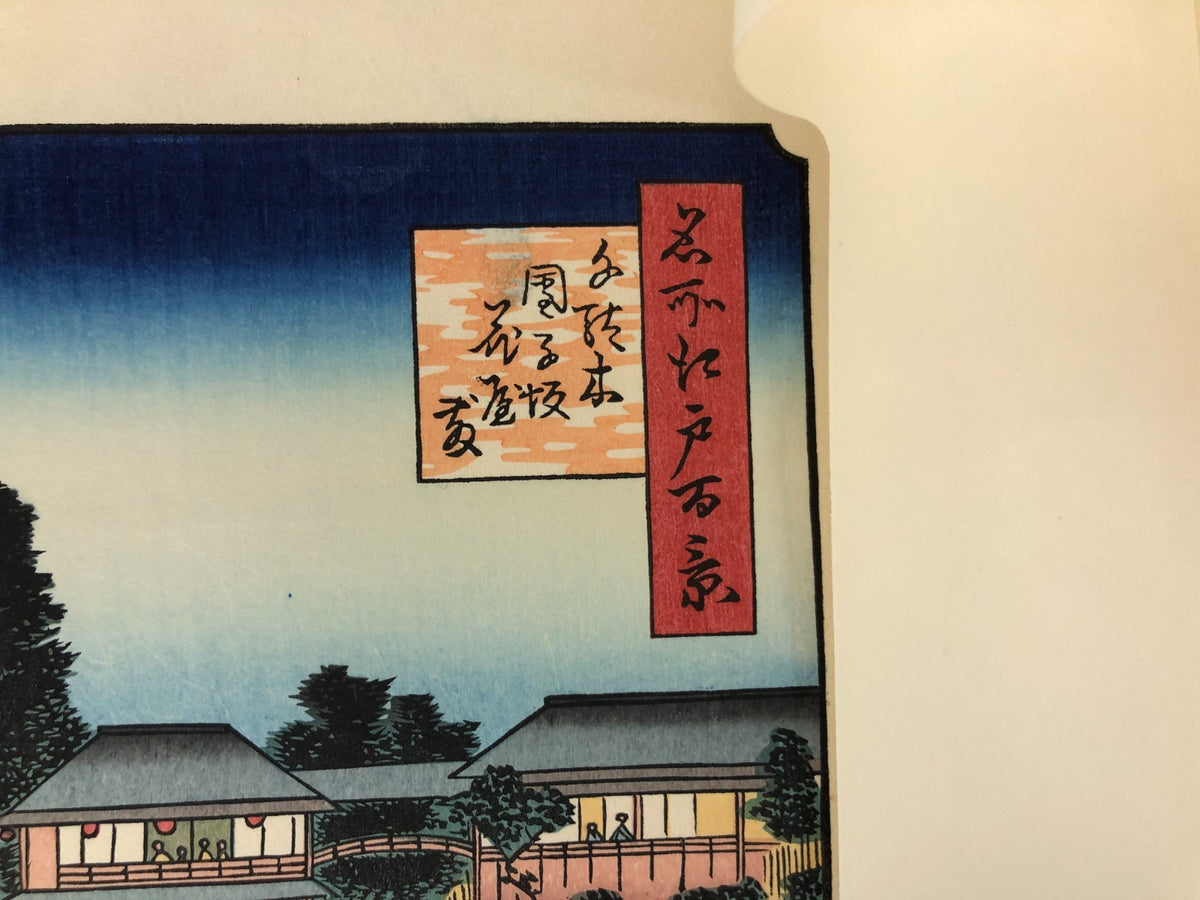 名所江戸百景
千駄木
團子坂
花屋
敷